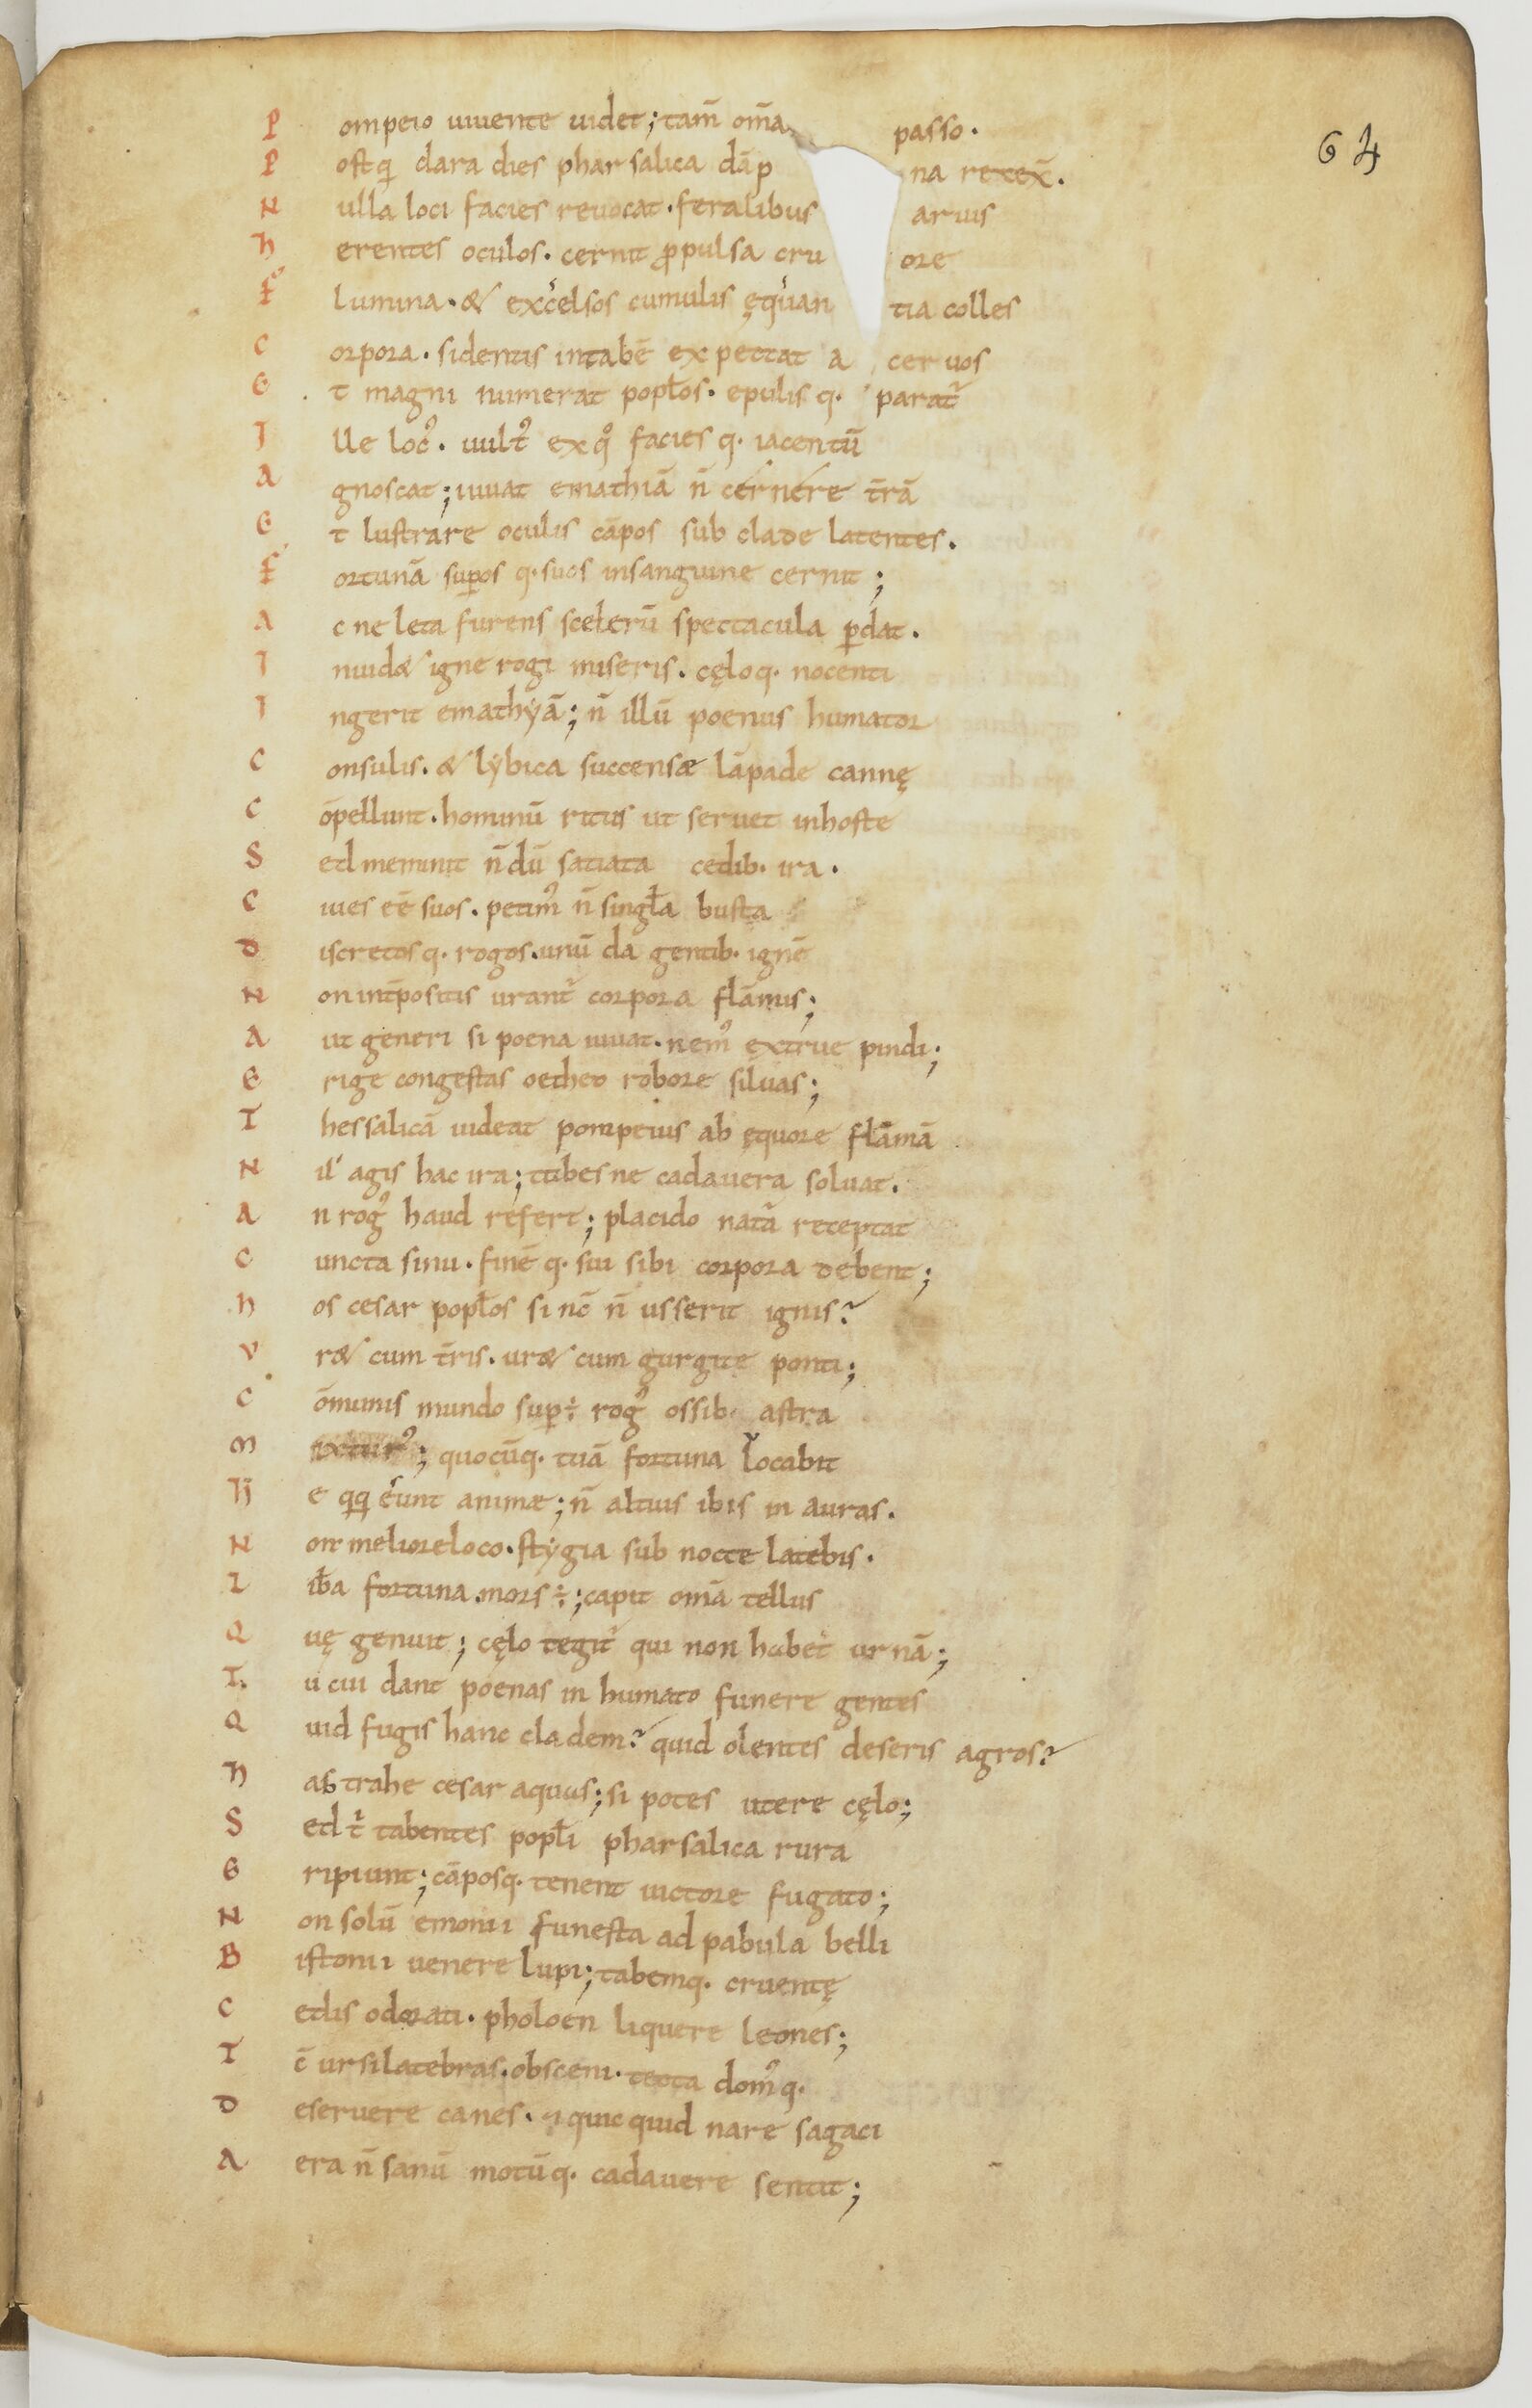 64
P ompeio uiuente uidet; tam̄ om̄a passo.
P ostq̄ clara dies pharsalica dāp na retex̄.
N ulla loci facies reuocat. feralibus aruis
h erentes oculos. cernit ꝓpulsa cru ore
F lumina. & excelsos cumulis ęquan tia colles
C orpora. sidentis intabē expectat a ceruos
E t magni numerat popłos. epulisq. parat᷑
I lle locꝰ. uultꝰ ex qͦ faciesq. iacentū
A gnoscat; iuuat emathiā n̄ cernere t̄rā
E t lustrare oculis cāpos sub clade latentes.
F ortunā suꝑosq. suos insanguine cernit;
A c ne leta furens scelerū spectacula ꝑdat.
I nuid& igne rogi miseris. cęloq. nocenti
I ngerit emathẏā; n̄ illū poenus humator
C onsulis. & lẏbica succensæ lāpade cannę
C ōpellunt. hominū ritus ut seruet inhoste
S ed meminit n̄dū satiata cedib. ira.
C iues eē suos. petimꝰ n̄ singła busta
D iscretosq. rogos. unū da gentib. ignē
N on int̄positis urant᷑ corpora flāmis;
A ut generi si poena iuuat. nemꝰ extrue pindi;
E rige congestas oetheo robore siluas;
T hessalicā uideat pompeius ab ęquore flāmā
N il' agis hac ira; tubesne cadauera soluat.
A n rogꝰ haud refert; placido nat᷑a receptat
C uncta sinu. finēq. sui sibi corpora debent;
h os cesar popłos si nc̄ n̄ usserit ignis?
V r& cum t̄ris. ur& cum gurgite ponti;
C ōmunis mundo suꝑ÷ rogꝰ ossib. astra
M ixturꝰ; quocūq. tuā fortuna uocabit
H e qq̄ eunt animæ; n̄ altius ibis in auras.
N on melioreloco. stẏgia sub nocte latebis.
L ib̄a fortuna mors ÷; capit om̄a tellus
Q uę genuit; cęlo tegit᷑ qui non habet urnā;
T u cui dant poenas in humato funere gentes
Q uid fugis hanc cladem? quid olentes deseris agros?
h as trahe cesar aquas; si potes utere cęlo;
S ed t᷑ tabentes popłi pharsalica rura
E ripiunt; cāposq. tenent uictore fugato;
N on solū emonii funesta ad pabula belli
B istonii uenere lupi; tabemq. cruentę
C edis odorati. pholoen liquere leones;
T c̄ ursi latebras. obsceni. tecta domꝰq.
D eseruere canes. & quicquid nare sagaci
A era n̄ sanū motūq. cadauere sentit;